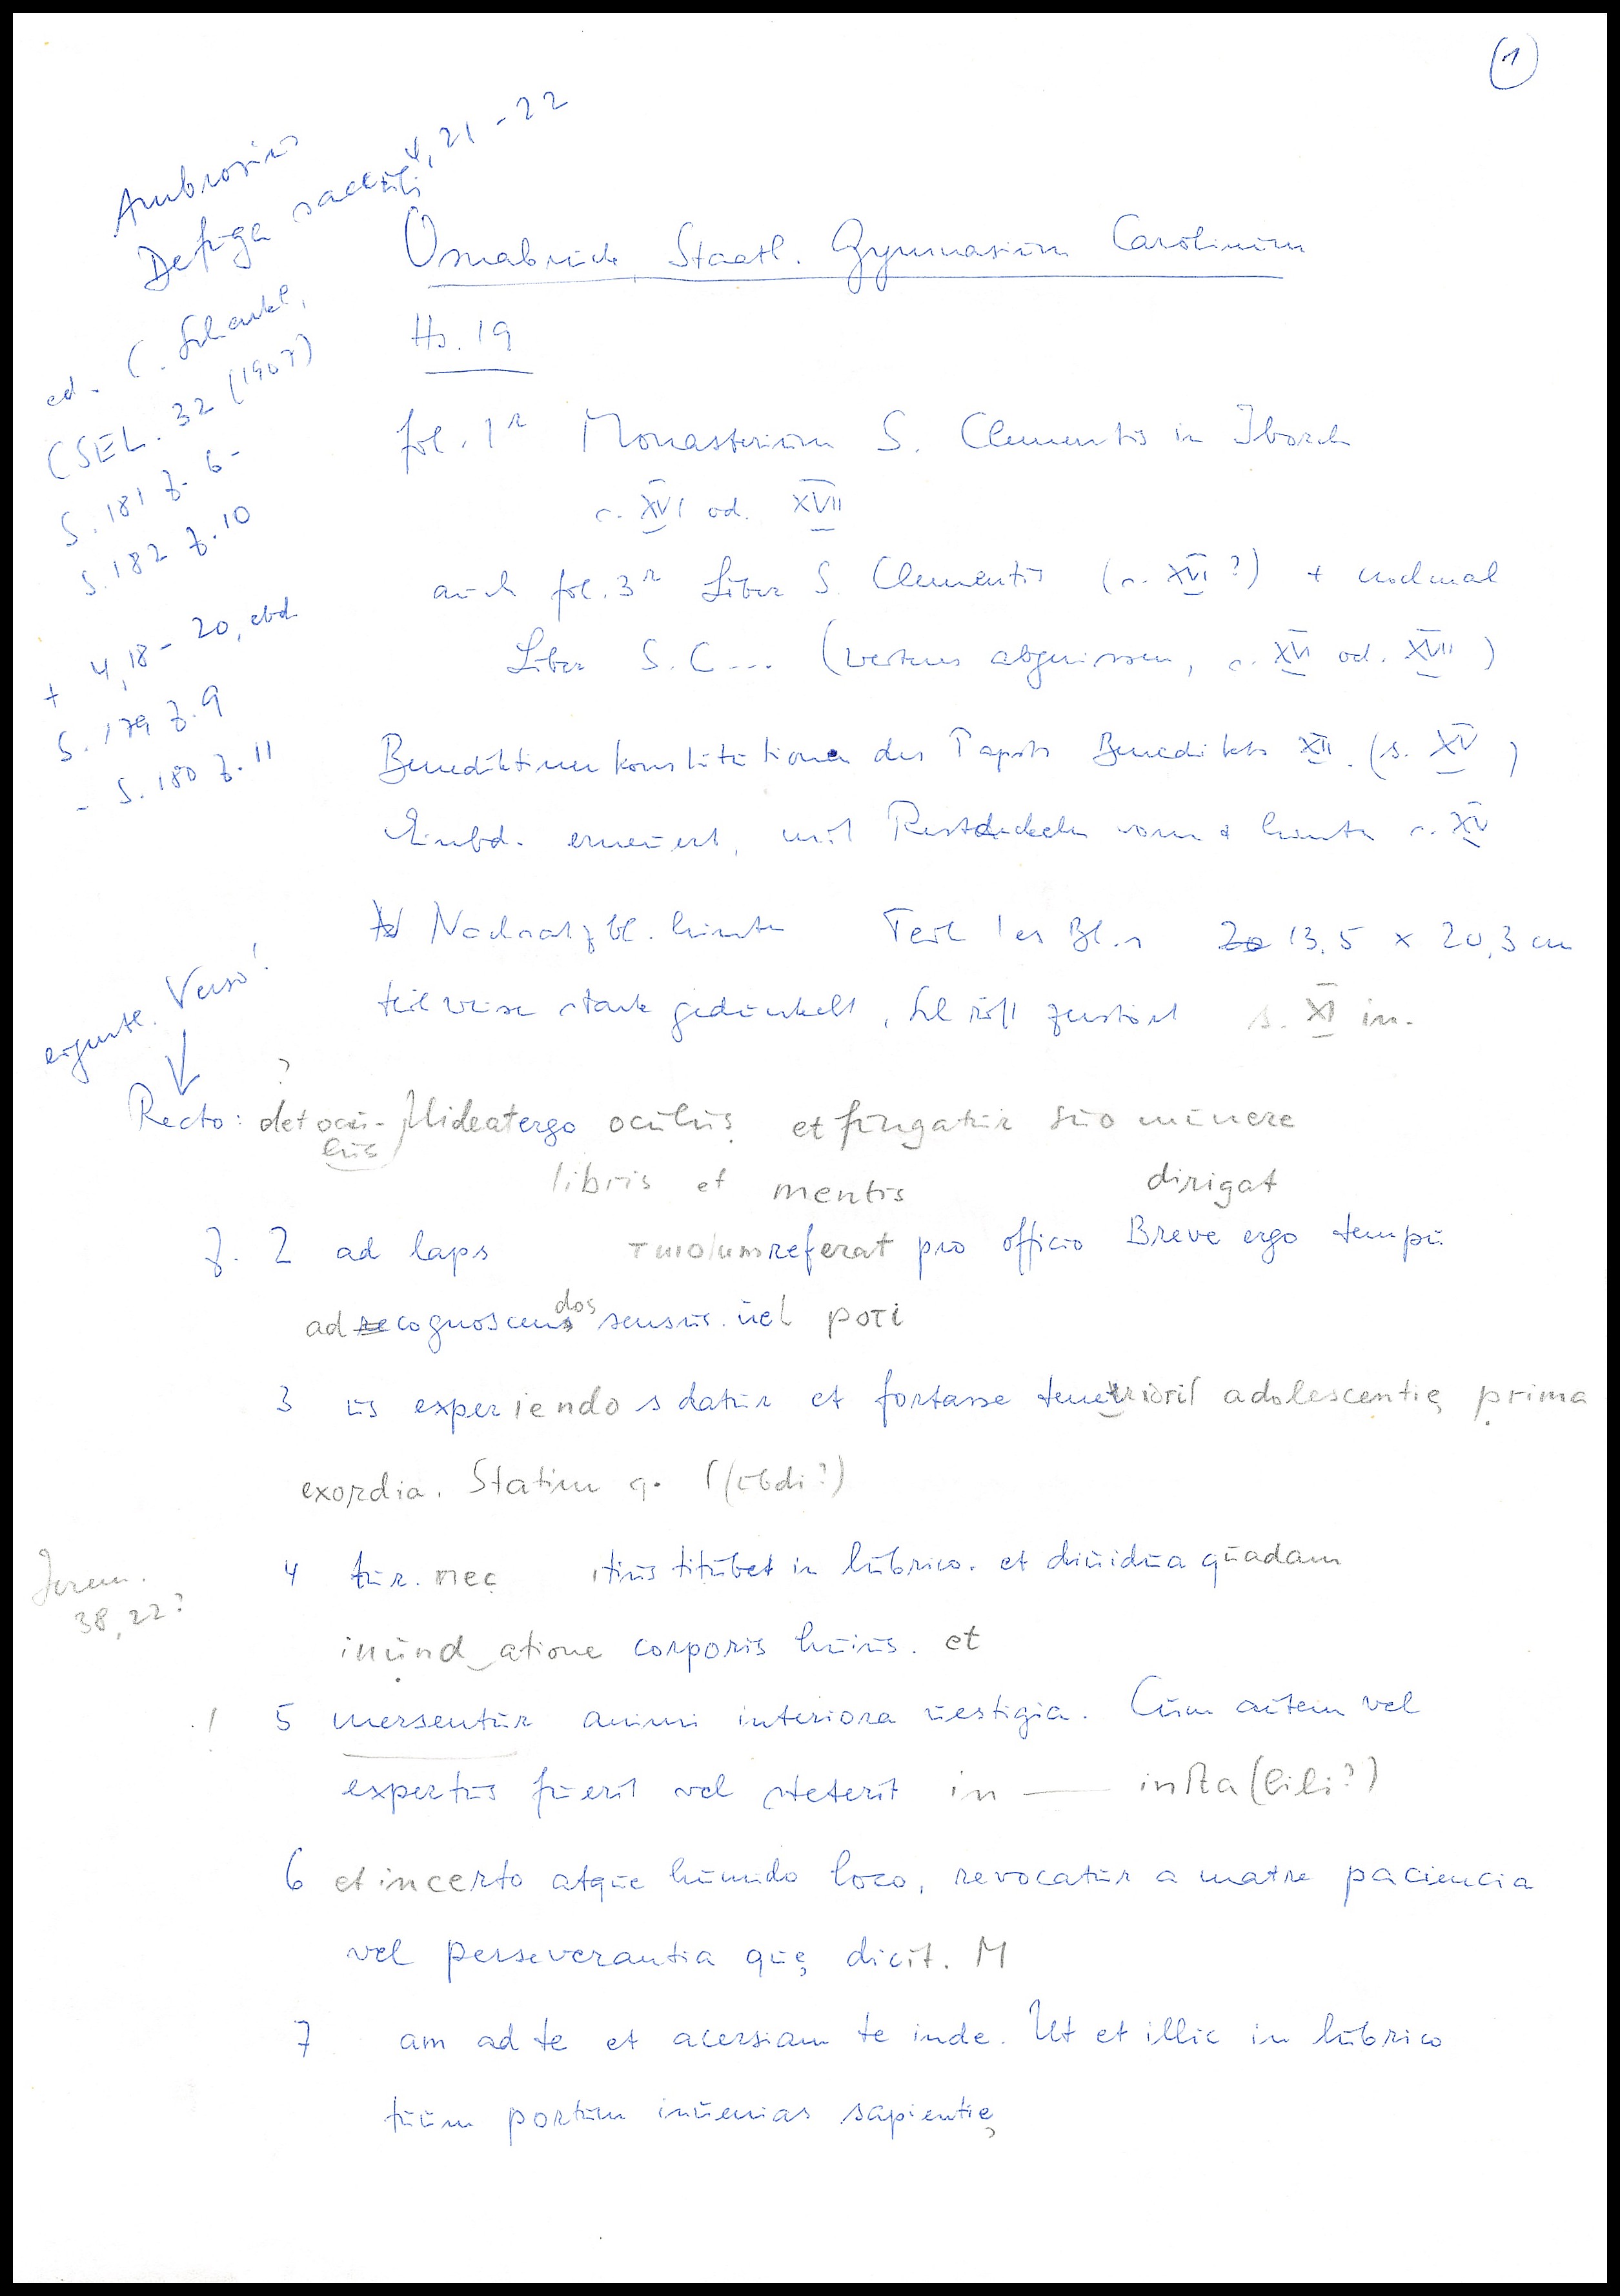 (1)
Ambrosius
De fuga saeculi 4, 21-22
ed. C. Schenkl,
CSEL. 32 (1907)
S. 181 Z. 6-
S. 182 Z. 10
+ 4,18-20, ebd
S. 179 Z. 9
- S. 180 Z. 11
Osnabrück, Staatl. Gymnasium Carolinum
Hs. 19
fol. 1r Monasterium S. Clementis in Iborch
s. XVI od. XVII
auch fol. 3r Liber S. Clementis (s. XVI?) + nochmal
Liber S. C... (weiteres abgerissen, s. XVI od. XVII)
Benediktinerkonstitutionen des Papsts Benedikts XII. (s. XV)
Einbd. erneuert, mit Restdeckeln vorn + hinten s. XV
Nachsatzbl. hinten Teil 1es Bl.s 13,5 x 20,3 cm
teilweise stark gedunkelt, Schrift zerstört s. XI in.
eigentl. Verso!
?
Recto: det ocu- Uideat ergo oculus et fungatur suo munere
lus
libris et mentis dirigat
Z. 2 ad laps referat pro officio Breve ergo tempu
ad recognoscens sensus. uel poti
dos
3 us experiendos datur et fortasse tenerioris adolescentię prima
exordia. Statim q. s(ubdi?)
4 tur. nec itius titubet in lubrico. et diuidua quadam
inund_atione corporis huius. et
Jerem.
38,22?
! 5 mersentur animi interiora uestigia. Cum autem vel
expertus fuerit vel steterit in — insta(bili?)
6 et incerto atque humido loco, revocatur a matre paciencia
vel perseverantia quę dicit. M
7 am ad te et acersiam te inde. Ut et illic in lubrico
tuum portum inuenias sapientię